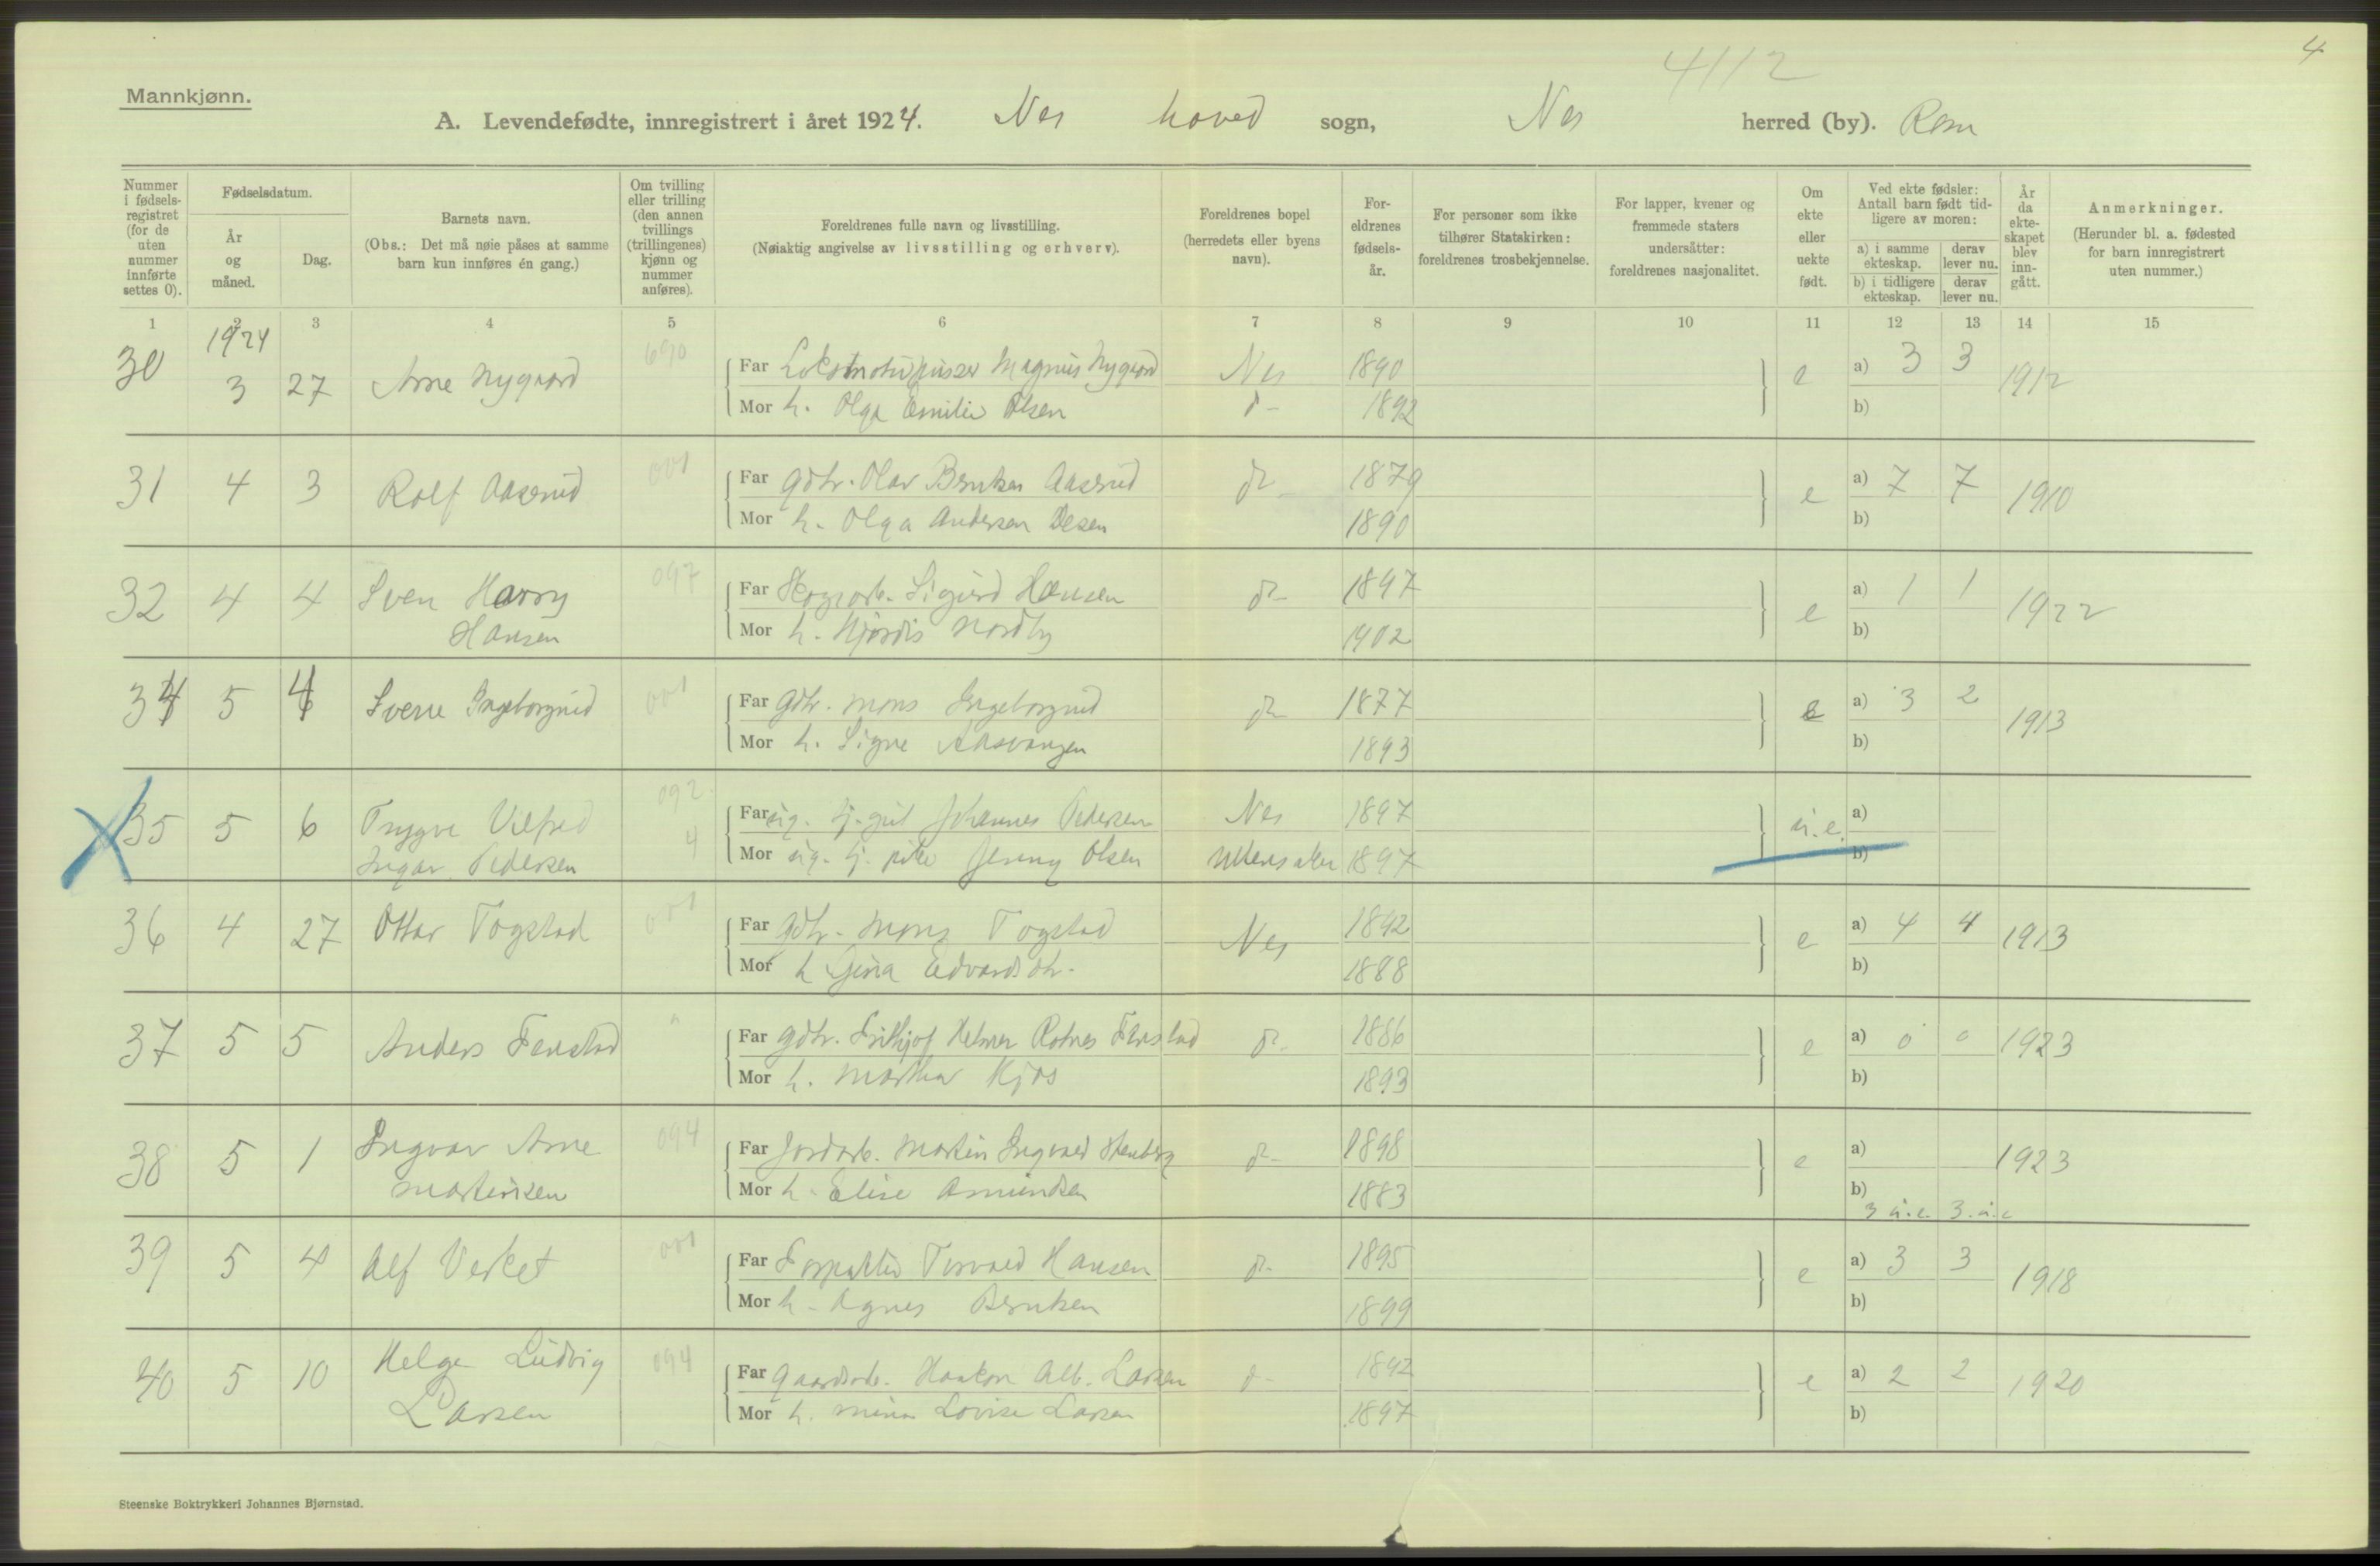 4
4112
Mannkjønn.
A. Levendefødte, innregistrert i året 1924. Nes hoved sogn, Nes herred (by). Rom
Nummer i fødsels-registret (for de uten nummer innførte settes 0).
Fødselsdatum.
År og måned.
Dag.
Barnets navn.
(Obs.: Det må nøie påses at samme barn kun innføres én gang.)
Om tvilling eller trilling (den annen tvillings (trillingenes) kjønn og nummer anføres).
Foreldrenes fulle navn og livsstilling.
(Nøiaktig angivelse av livsstilling og erhverv).
Foreldrenes bopel (herredets eller byens navn).
For-eldrenes fødsels-år.
For personer som ikke tilhører Statskirken: foreldrenes trosbekjennelse.
For lapper, kvener og fremmede staters undersåtter: foreldrenes nasjonalitet.
Om ekte eller uekte født.
Ved ekte fødsler: Antall barn født tid-ligere av moren:
a) i samme ekteskap. derav lever nu.
b) i tidligere ekteskap. derav lever nu.
År da ekte-skapet blev inn-gått.
Anmerkninger.
(Herunder bl. a. fødested for barn innregistrert uten nummer.)
1 2 3 4 5 6 7 8 9 10 11 12 13 14 15
1924
30 3 27 Arne Nygaard 690 Far Lokomotivpusser Magnus Nygaard Nes 1890 e a) 3 3 1912
Mor h. Olga Emilie Olsen d- 1892 b)
31 4 3 Rolf Aaserud 001 Far Gdbr. Olav Berntsen Aaserud do 1879 e a) 7 7 1910
Mor h. Olga Andersen 1890 b)
32 4 4 Sven Harry Hansen 097 Far Skogsarb. Sigurd Hansen do 1897 e a) 1 1 1922
Mor h. Hjørdis Nordby 1902 b)
34 5 4 Sverre Ingeborgrud 001 Far Gdbr. Mons Ingeborgrud do 1877 e a) 3 2 1913
Mor h. Signe Aasvangen 1893 b)
35 5 6 Trygve Vilfred Ingar Pedersen 092 4 Far ug. tj. gut Johannes Pedersen Nes 1897 u.e. a)
Mor ug. tj. pike Jenny Olsen Ullensaker 1897 b)
36 4 27 Ottar Togstad 001 Far Gdbr. Mons Togstad Nes 1892 e a) 4 4 1913
Mor h Gina Edvardsdtr. 1888 b)
37 5 5 Anders Fenstad " Far gdbr. Frithjof Helmer Rotnes Fenstad d- 1886 e a) 0 0 1923
Mor h. Martha Kjos 1893 b)
38 5 1 Ingvar Arne Martinsen 094 Far Jordarb. Martin Ingvald Stenberg d- 1898 e a) 1923
Mor h. Elise Amundsen 1883 b) 3 u.e. 3 u.e
39 5 4 Alf Verket 001 Far Forpakter Torvald Hansen d- 1895 e a) 3 3 1918
Mor h. Agnes Berntsen 1899 b)
40 5 10 Helge Ludvig Larsen 094 Far Gaardsarb. Haakon Alb. Larsen d- 1892 e a) 2 2 1920
Mor h. Mina Lovise Larsen 1897 b)
Steenske Boktrykkeri Johannes Bjørnstad.